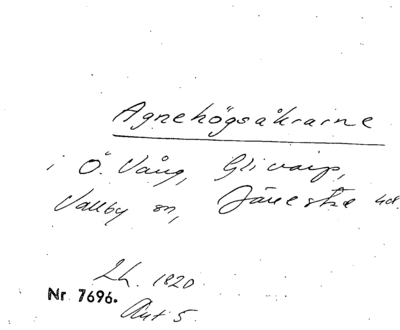 Agnehögsåkrarne
i Ö. Vång, Glivarp,
Vallby sn, Järrestad hd.
Lh. 1820
Nr 7696.
Akt 5